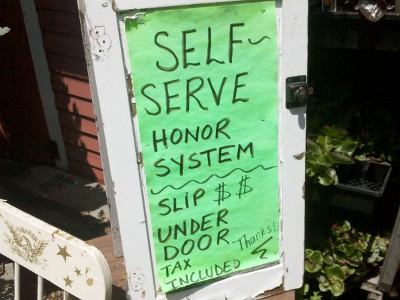 SELF-
SERVE
HONOR
SYSTEM
SLIP $ $
UNDER
DOOR Thanks!
TAX
INCLUDED